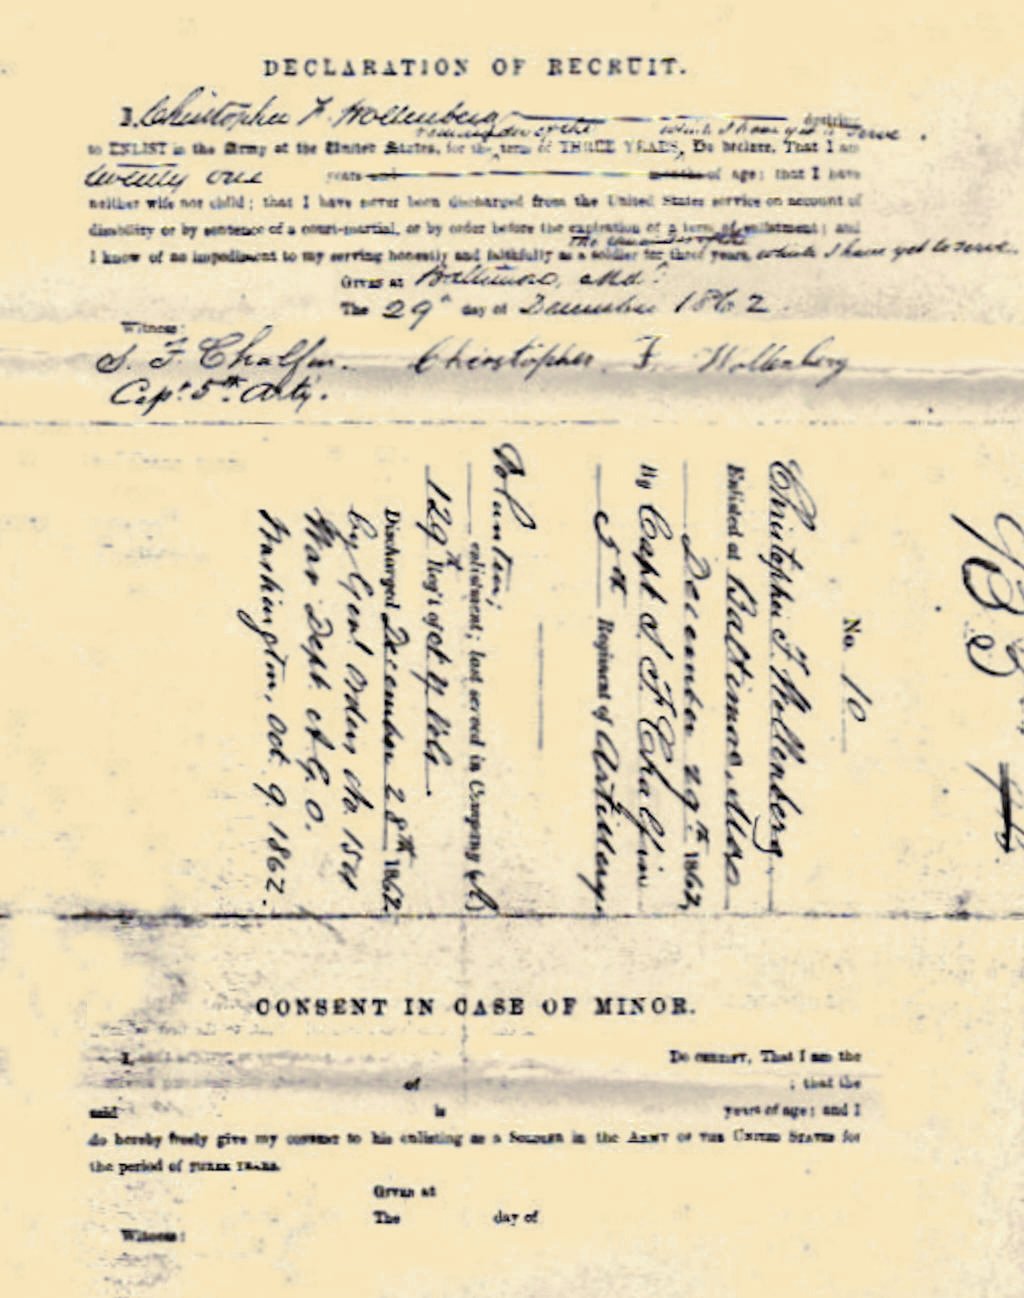 DECLARATION OF RECRUIT.
I, Christopher F. Wollenberg desiring
remainder of the which I have yet to serve.
to ENLIST in the Army of the United States, for the term of THREE YEARS, Do declare, That I am
twenty one years and months of age; that I have
neither wife nor child; that I have never been discharged from the United States service on account of
disability or by sentence of a court-martial, or by order before the expiration of a term of enlistment; and
the remainder of the
I know of no impediment to my serving honestly and faithfully as a soldier for three years, which I have yet to serve.
Given at Baltimore, Md.
The 29th day of December 1862.
Witness:
S. F. Chalfin. Christopher F. Wollenberg
Capt. 5th Arty.
No. 10
Christopher F. Wollenberg
Enlisted at Baltimore,
December 29th 1862,
By Capt S. F. Chalfin
5th Regiment of Artillery.
enlistment; last served in Company (A)
129th Reg't of Vols.
Discharged December 28th 1862.
by Genl Orders No. 154
War Dept. A. G. O.
Washington, Oct. 9. 1862.
CONSENT IN CASE OF MINOR.
I, Do CERTIFY, That I am the
of ; that the
said is years of age; and I
do hereby freely give my CONSENT to his enlisting as a SOLDIER in the ARMY OF THE UNITED STATES for
the period of THREE YEARS.
Given at
The day of
Witness: